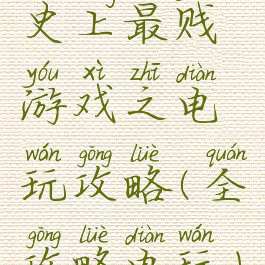 史上最贱
yóu xì zhī diàn
游戏之电
wán gōng lüè quán
玩攻略(全
gōng lüè diàn wán
攻略电玩)